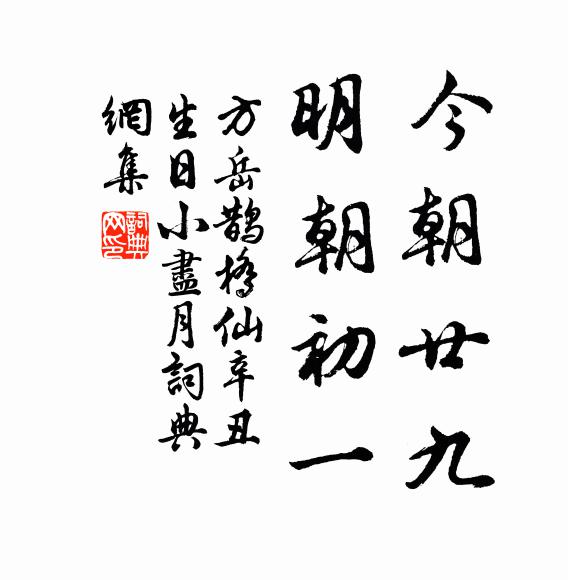 今朝廿九
明朝初一
方岳鵲橋仙辛丑
生日小盡月詞典
網集
詞典
网印